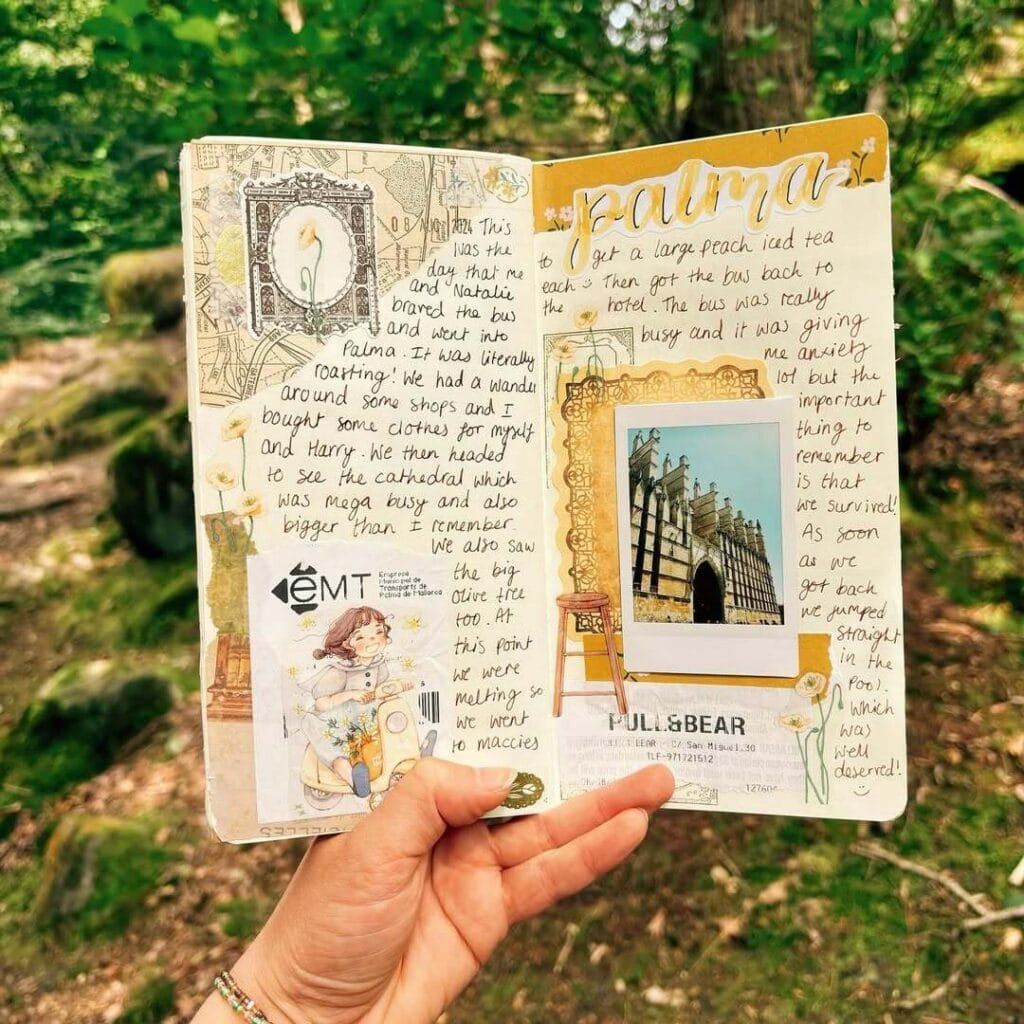 08 AUG 2024 This
was the
day that me
and Natalie
braved the bus
and went into
Palma. It was literally
roasting! We had a wander
around some shops and I
bought some clothes for myself
and Harry. We then headed
to see the cathedral which
was mega busy and also
bigger than I remember.
We also saw
the big
olive tree
too. At
this point
we were
melting so
we went
to maccies
eMT
Empresa
Municipal de
Transports de
Palma de Mallorca
palma
to get a large peach iced tea
each Then got the bus back to
the hotel. The bus was really
busy and it was giving
me anxiety
lol but the
important
thing to
remember
is that
we survived!
As soon
as we
got back
we jumped
straight
in the
pool.
Which
was
well
deserved!
PULL&BEAR
PULL & BEAR - C/ San Miguel,30
TLF-971721512